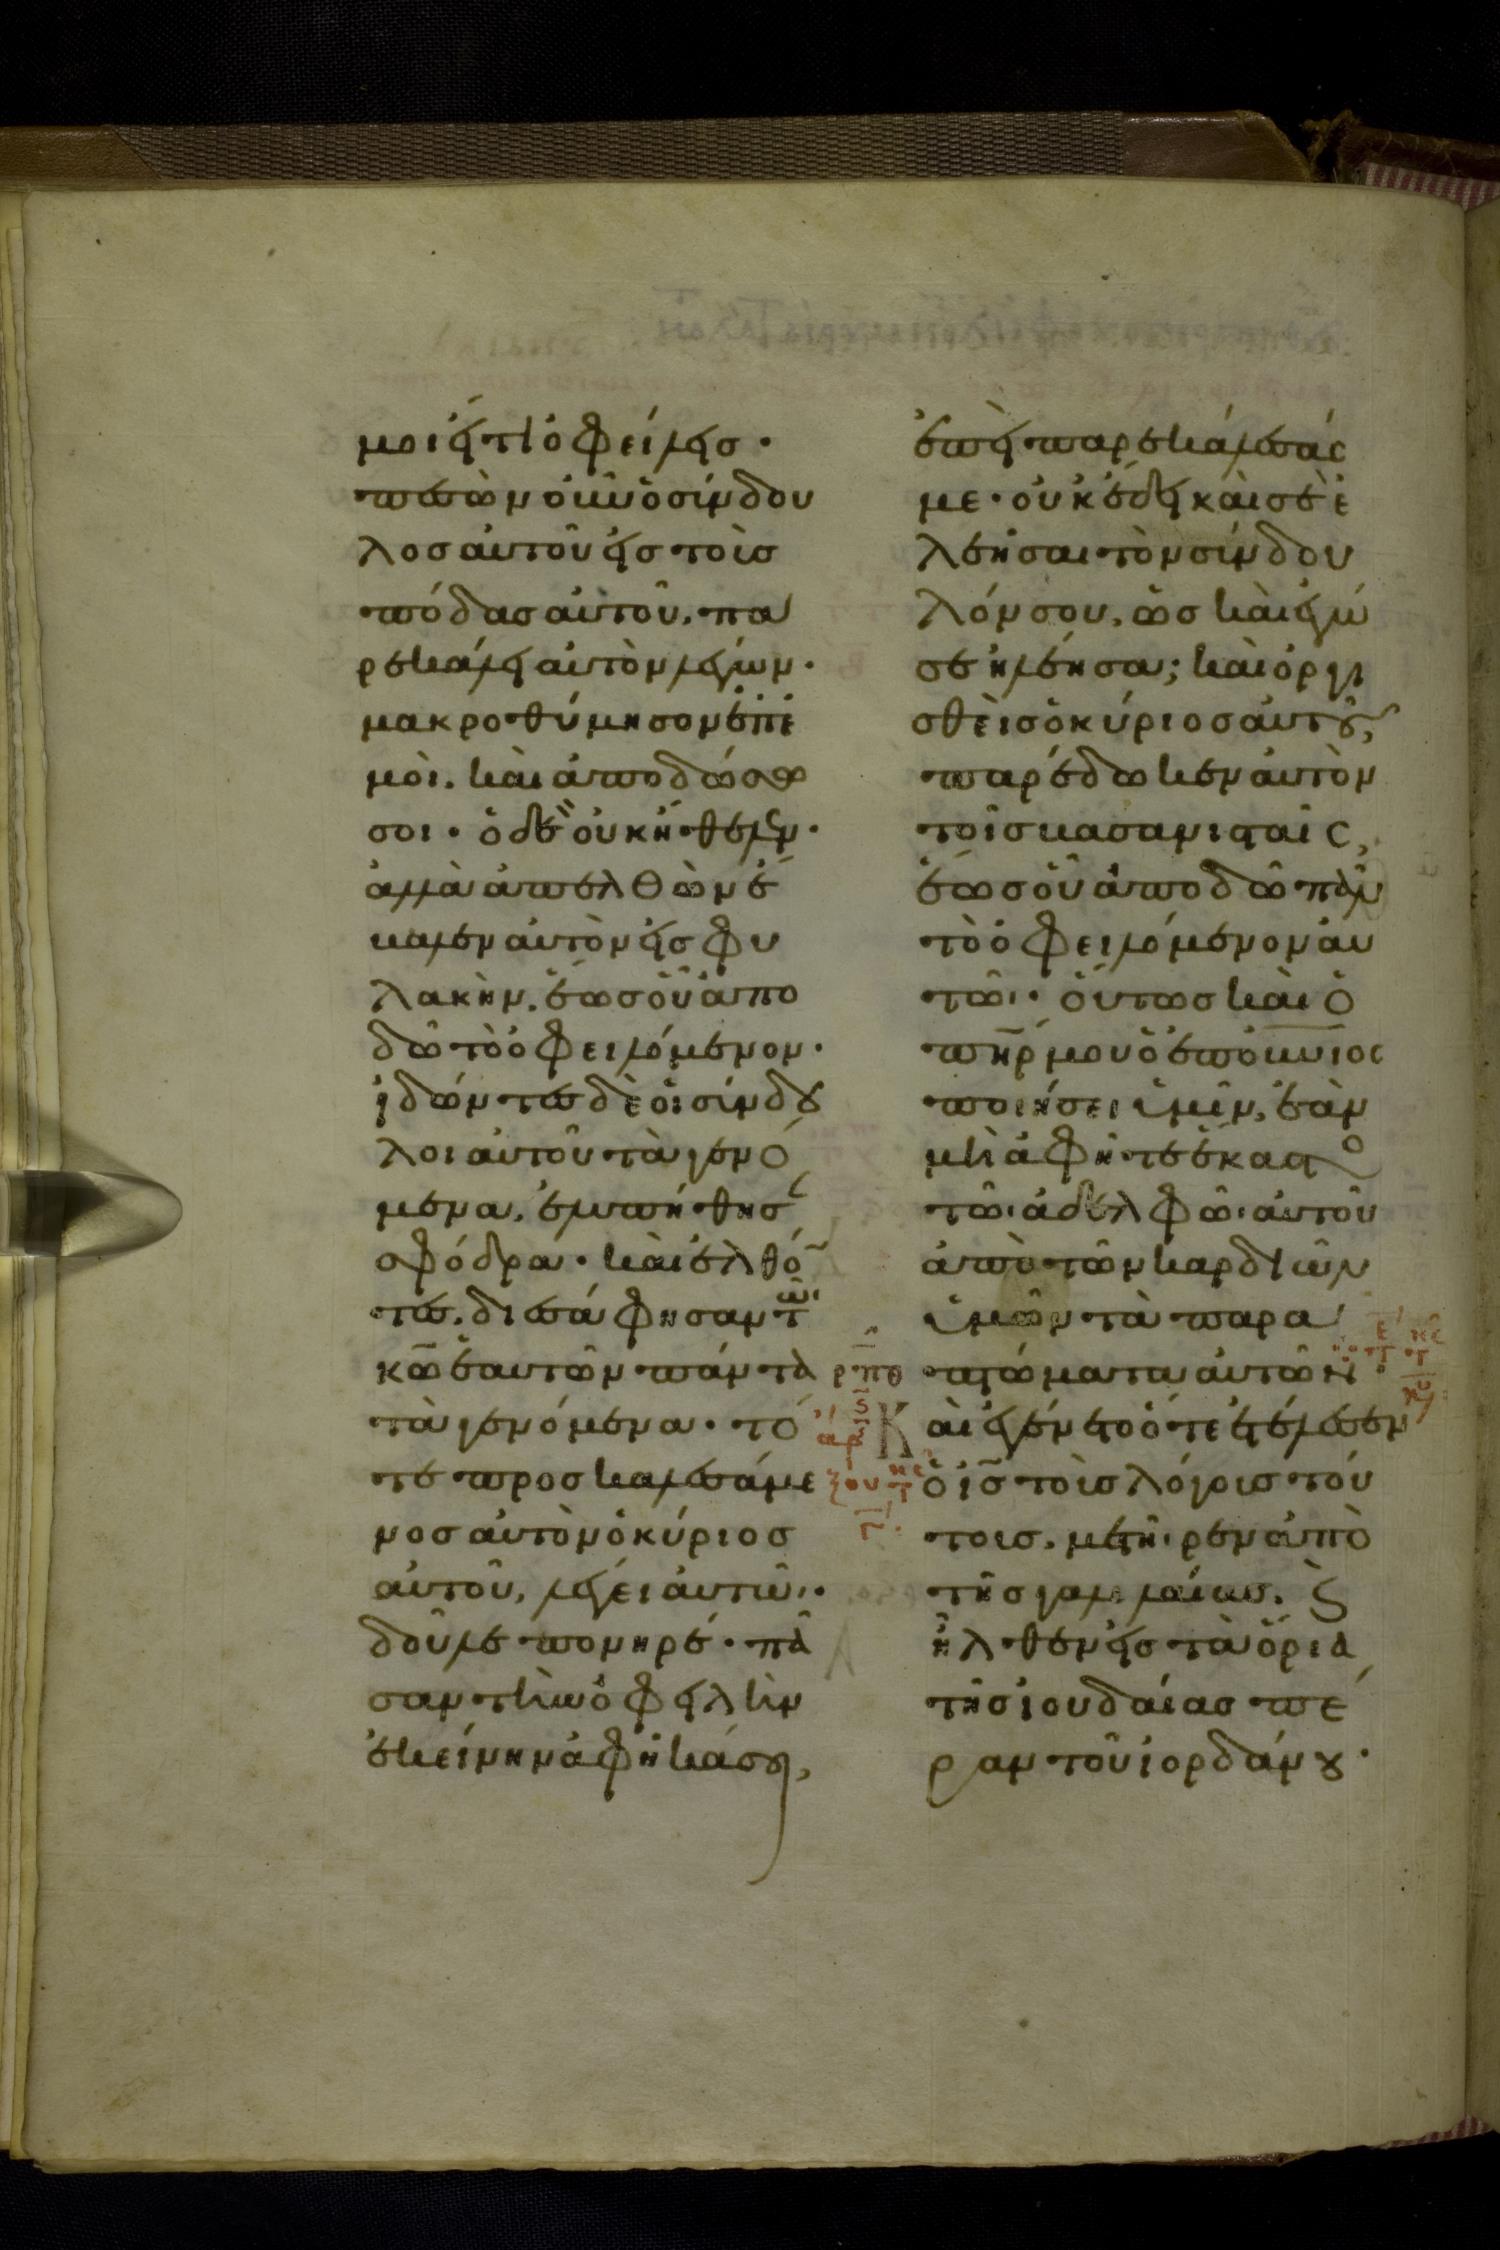 μοι εἴ τι ὀφείλεις·
πεσὼν οὖν ὁ σύνδου
λοσ αὐτοῦ εἰσ τοὺσ
πόδασ αὐτοῦ, πα
ρεκάλει αὐτὸν λέγων·
μακροθύμησον ἐπ' ἐ
μοὶ, καὶ ἀποδώσω
σοι· ὁ δὲ οὐκ ἤθελεν·
ἀλλὰ ἀπελθὼν ἔ
βαλεν αὐτὸν εἰσ φυ
λακὴν, ἕωσ οὗ ἀπο
δῶ τὸ ὀφειλόμενον·
ἰδόντεσ δὲ οἱ σύνδου
λοι αὐτοῦ τὰ γενό
μενα, ἐλυπήθησ
σφόδρα· καὶ ἐλθό
τεσ, διεσάφησαν τῶι
κω ἑαυτῶν πάντα
τὰ γενόμενα· τό
τε προσκαλεσάμε
νοσ αὐτὸν ὁ κύριοσ
αὐτοῦ, λέγει αὐτῶι·
δοῦλε πονηρέ· πᾶ
σαν τὴν ὀφειλὴν
ἐκείνην ἀφῆκά σοι,
ἐπεὶ παρεκάλεσάς
με· οὐκ ἔδει καὶ σὲ ἐ
λεῆσαι τὸν σύνδου
λόν σου, ὡσ καὶ ἐγώ
σε ἠλέησα; καὶ ὀργι
σθεὶσ ὁ κύριοσ αὐτοῦ,
παρέδωκεν αὐτὸν
τοῖσ βασανισταῖς,
ἕωσ οὗ ἀποδῶ πᾶν
τὸ ὀφειλόμενον αὐ
τῶι· οὕτωσ καὶ ὁ
πηρ μου ὁ ἐπουνιος
ποιήσει ὑμῖν, ἐὰν
μὴ ἀφῆτε ἕκαστο
τῶι ἀδελφῶι αὐτοῦ
ἀπὸ τῶν καρδιῶν
ὑμῶν τὰ παρα
πτώματα αὐτῶν·
Και ἐγένετο ὅτε ἐτέλεσεν
ὁ ισ τοὺσ λόγουσ τού
τουσ, μετῆρεν ἀπὸ
τῆσ γαλιλαίασ, ϛ
ἦλθεν εἰσ τὰ ὅρια
τῆσ ἰουδαίασ πέ
ραν τοῦ ἰορδάνου·